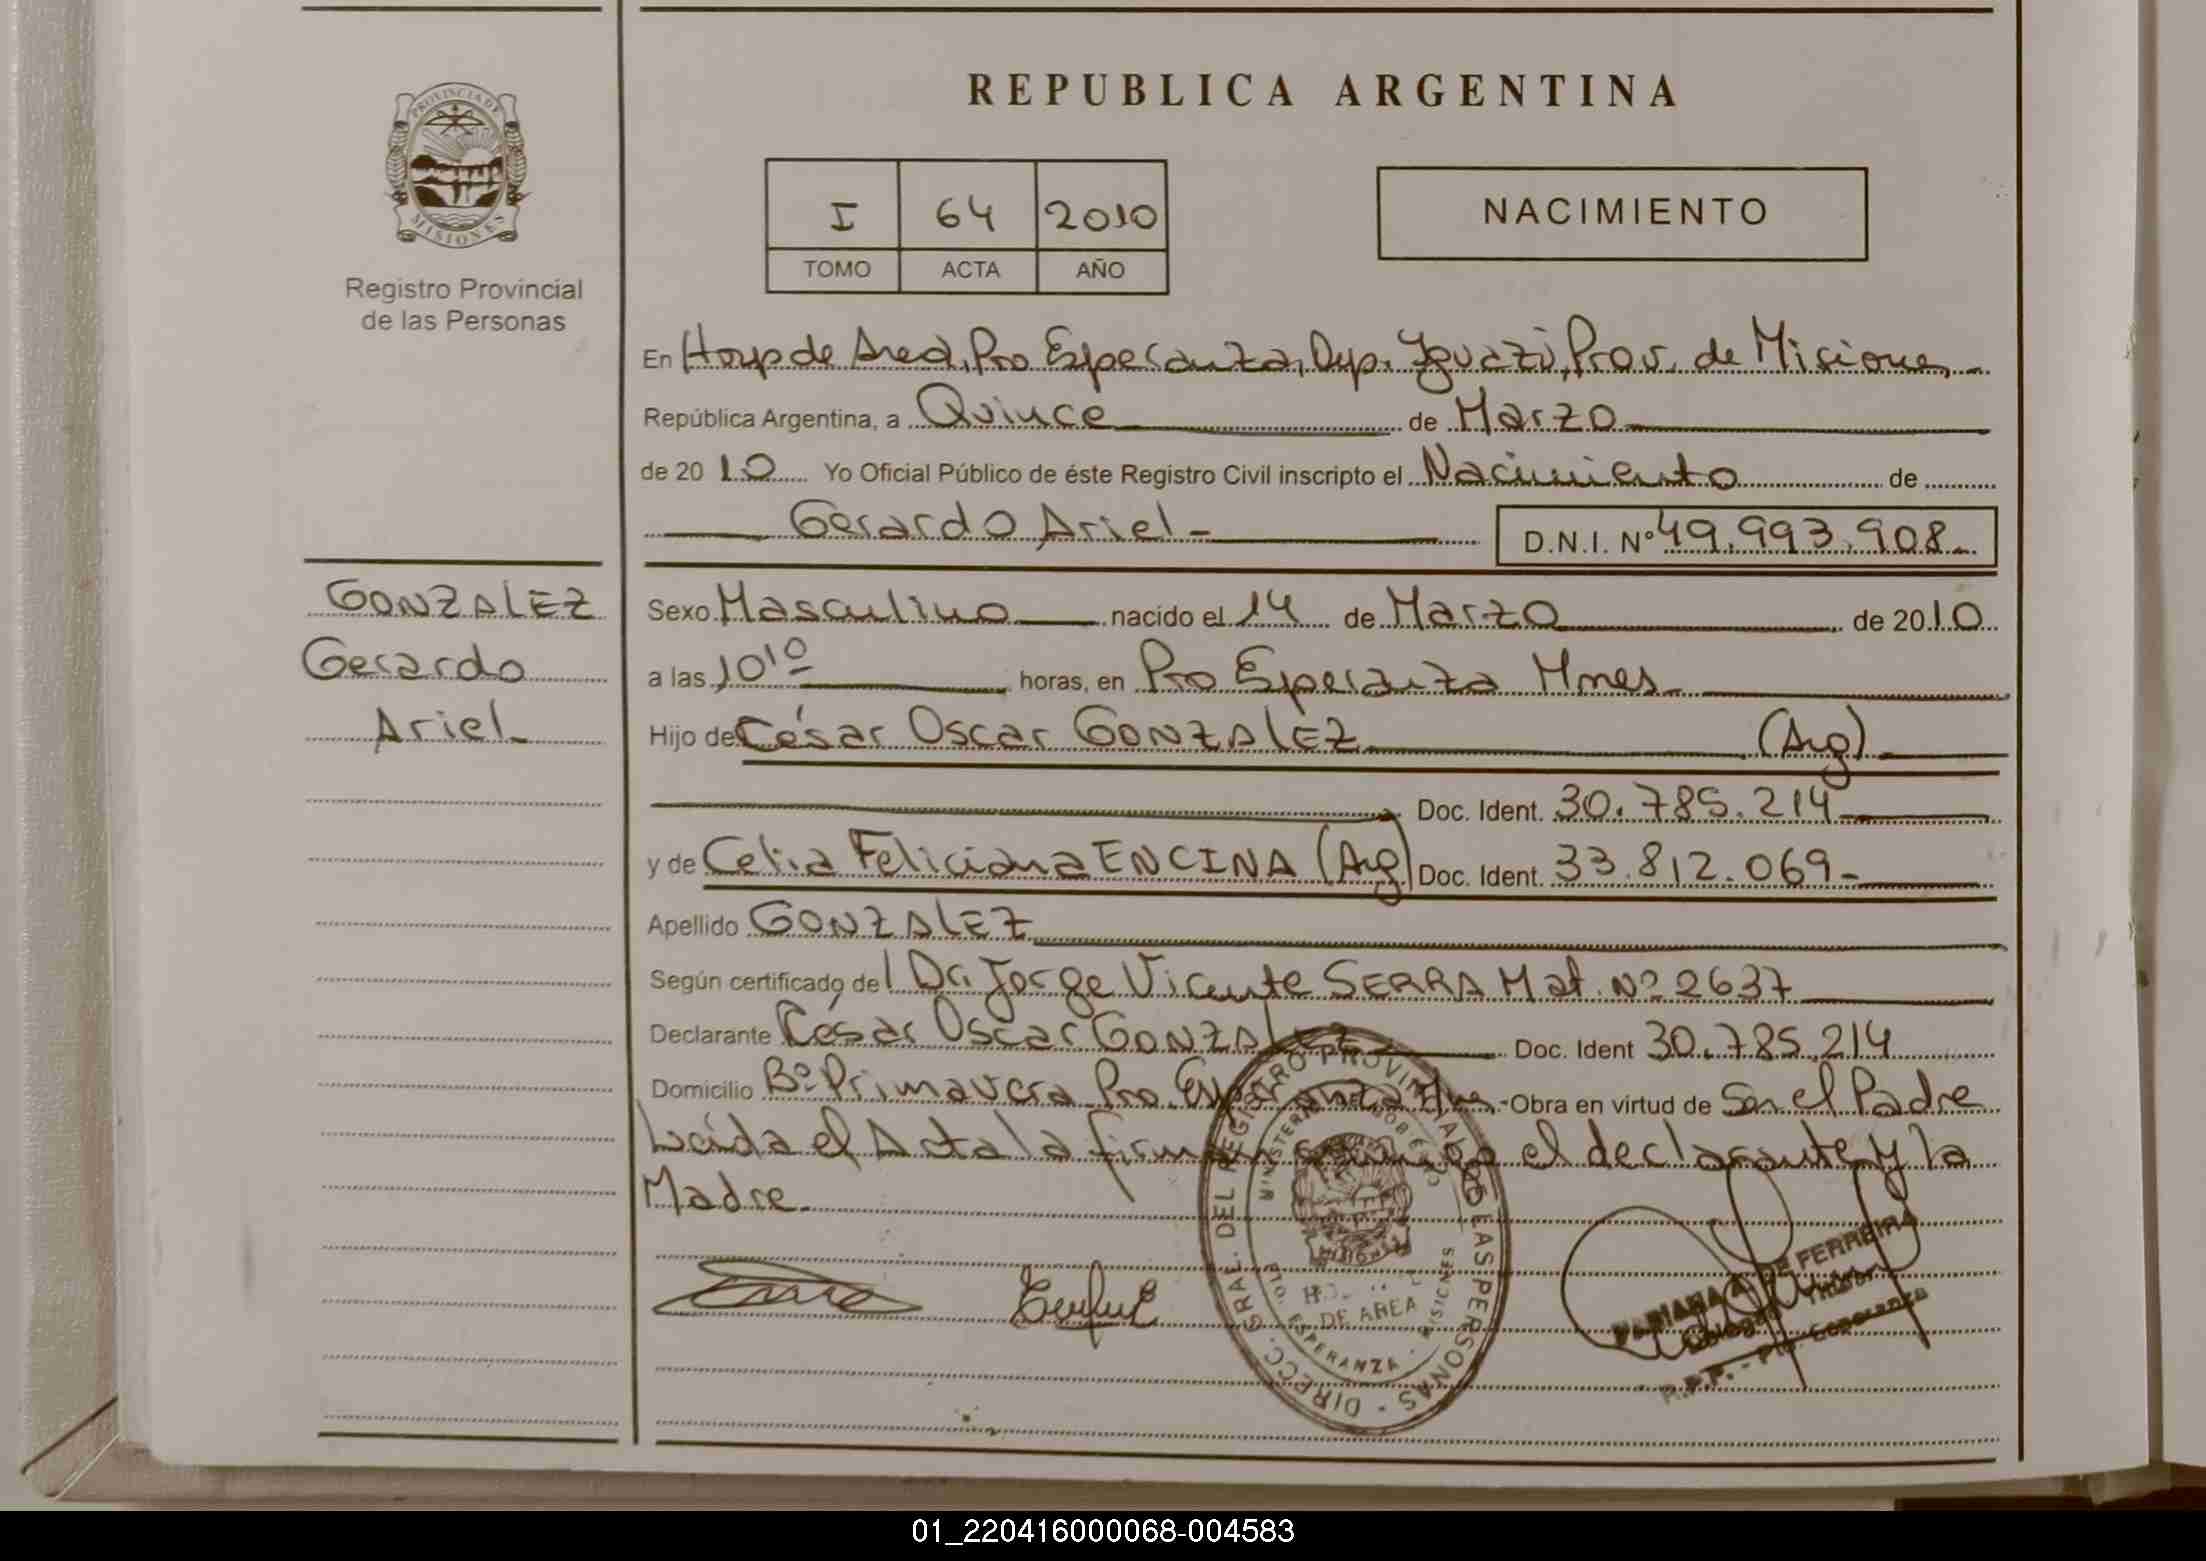 REPUBLICA ARGENTINA
PROVINCIA DE
MISIONES
Registro Provincial
de las Personas
I 64 2010
TOMO ACTA AÑO
NACIMIENTO
En Hosp de Area, Pto Esperanza, Dep. Iguazú, Prov. de Misiones
República Argentina, a Quince de Marzo
de 20 10 Yo Oficial Público de éste Registro Civil inscripto el Nacimiento de
Gerardo Ariel D.N.I. Nº 49.993.908
GONZALEZ
Gerardo
Ariel
Sexo Masculino nacido el 14 de Marzo de 2010
a las 10 10 horas, en Pto Esperanza Mnes
Hijo de César Oscar GONZALEZ (Arg)
Doc. Ident. 30.785.214
y de Celia Feliciana ENCINA (Arg) Doc. Ident. 33.812.069
Apellido GONZALEZ
Según certificado del Dr. Jorge Vicente SERRA Mat. Nº 2637
Declarante César Oscar GONZALEZ Doc. Ident 30.785.214
Domicilio Bº Primavera Pto. Esperanza Mnes Obra en virtud de Ser el Padre
Leida el Acta la firman conmigo el declarante y la
Madre.
DIRECC. GRAL. DEL REGISTRO PROVINCIAL DE LAS PERSONAS
MINISTERIO DE GOBIERNO
DE AREA
ESPERANZA - MISIONES
MARIANA A. DE FERREIRA
R.P.P. - Pto. Esperanza
01_220416000068-004583